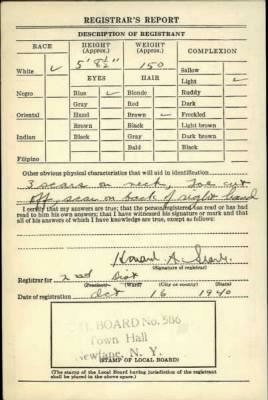 REGISTRAR'S REPORT
DESCRIPTION OF REGISTRANT
RACE HEIGHT (Approx.) WEIGHT (Approx.) COMPLEXION
5' 8½" 150 Sallow
White ✓ EYES HAIR Light ✓
Negro Blue ✓ Blonde Ruddy
Gray Red Dark
Oriental Hazel Brown ✓ Freckled
Brown Black Light brown
Indian Black Gray Dark brown
Bald Black
Filipino
Other obvious physical characteristics that will aid in identification
3 scars on neck, Toe cut
off, scar on back of right hand
I certify that my answers are true; that the person registered has read or has
had read to him his own answers; that I have witnessed his signature or mark and that
all of his answers of which I have knowledge are true, except as follows:
Howard A.
(Signature of registrar)
Registrar for 2nd Dist
(Precinct) (Ward) (City or county) (State)
Date of registration Oct 16 1940
BOARD No. 586
Town Hall
Newfane, N. Y.
(STAMP OF LOCAL BOARD)
(The stamp of the Local Board having jurisdiction of the registrant
shall be placed in the above space.)